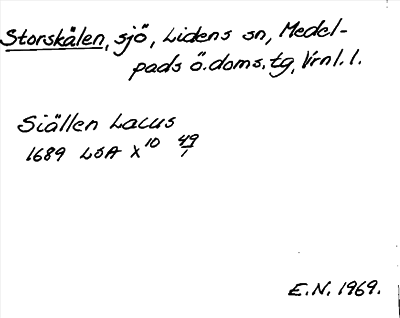 Storskålen, sjö, Lidens sn, Medel-
pads ö.doms.tg, Vrnl. l.
Siällen Lacus
1689 LSA X¹⁰ 49/1
E.N. 1969.